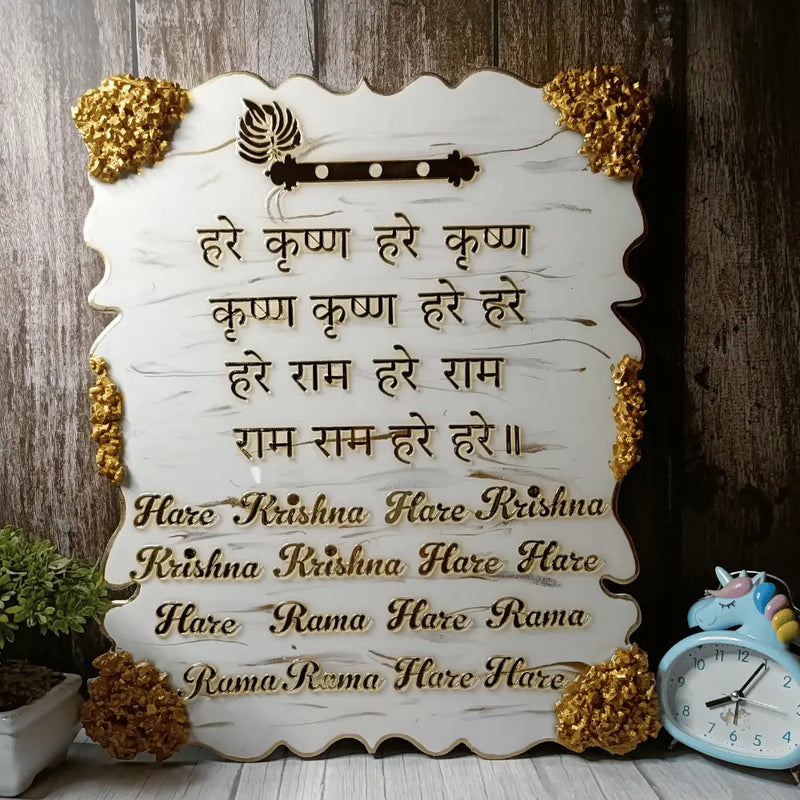 हरे कृष्ण हरे कृष्ण
कृष्ण कृष्ण हरे हरे
हरे राम हरे राम
राम राम हरे हरे॥
Hare Krishna Hare Krishna
Krishna Krishna Hare Hare
Hare Rama Hare Rama
Rama Rama Hare Hare
12
1
2
3
4
5
6
7
8
9
10
11